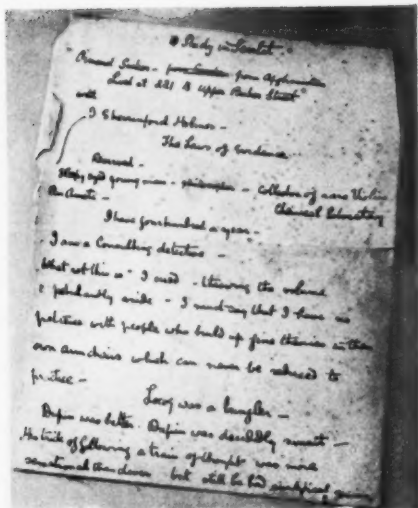 A Study in Scarlet
Ormond Sacker - from Soudan from Afghanistan
Lived at 221 B Upper Baker Street
with
I Sherrinford Holmes -
The Laws of Evidence
Reserved -
Sleepy eyed young man - philosopher - Collector of rare Violins
An Amati - Chemical laboratory
I have four hundred a year -
I am a Consulting detective -
What rot this is" I cried - throwing the volume
petulantly aside - I must say that I have no
patience with people who build up fine theories in their
own armchairs which can never be reduced to
practice -
Lecoq was a bungler -
Dupin was better. Dupin was decidedly smart -
His trick of following a train of thought was more
sensational than clever but still he had analytical genius